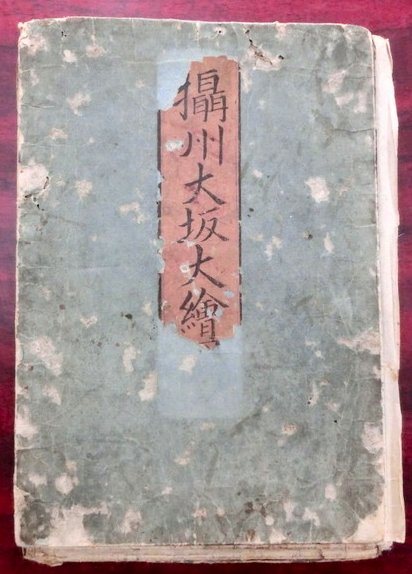 攝州大坂大繪